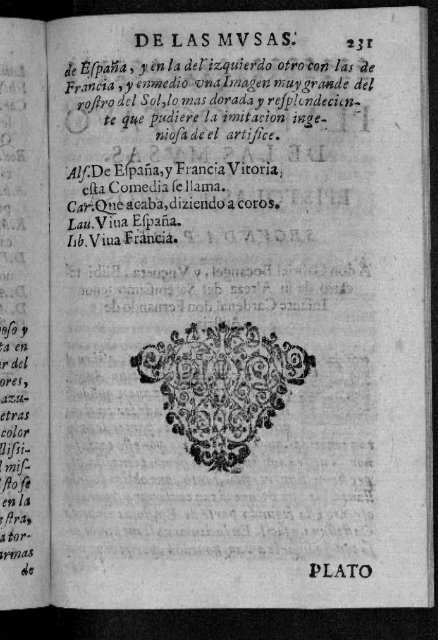 DE LAS MVSAS. 231
de España, y en la del izquierdo otro con las de
Francia, y enmedio vna Imagen muy grande del
rostro del Sol, lo mas dorada y resplendecien-
te que pudiere la imitacion inge-
niosa de el artifice.
Alf. De España, y Francia Vitoria,
esta Comedia se llama.
Car. Que acaba, diziendo a coros.
Lau. Viua España.
Isb. Viua Francia.
PLATO
oso y
ta en
r del
ores,
azu-
etras
color
llissi-
l mis-
sto se
en la
estra,
a tor-
armas
de